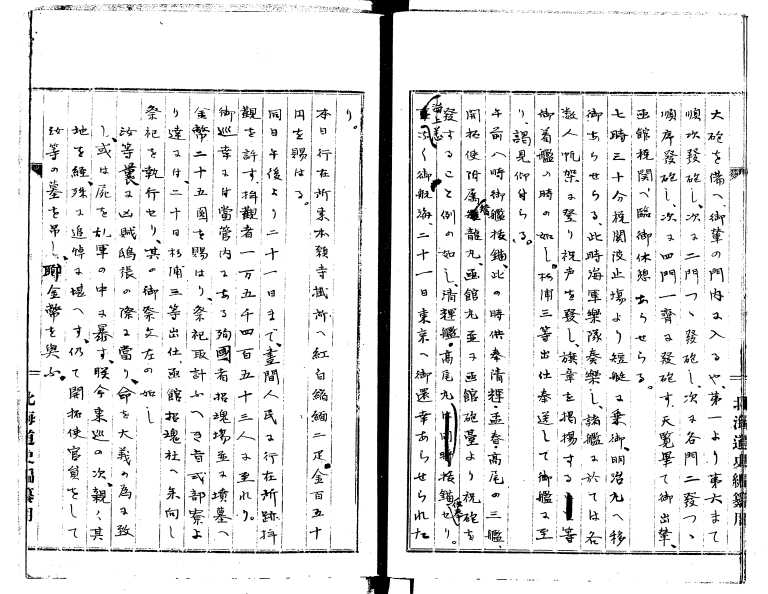 大砲を備へ御輦の門内に入るや、第一より第六まて
順次發砲し、次に二門つゝ發砲し、次に各門二發つゝ
順序發砲し、次に四門一齊に發砲す、天覧畢て御出輦、
函館税関へ臨御休憩あらせらる。
七時三十分税関波止場より短艇に乗御、明治丸へ移
御あらせらる。此時海軍樂隊奏樂し、諸艦に於ては各
数人帆架に登り祝声を發し、旗章を掲揚する等
御着艦の時の如し。杉浦三等出仕奉送して御艦に至
り、謁見仰付らる。
午前八時御艦抜錨、此の時供奉清輝・孟春・高尾の三艦、
開拓使附属船玄龍丸、函館丸並に函館砲臺より祝砲を
發すること例の如し、清輝艦・高尾丸同時抜錨せり。
海上恙なく御航海二十一日東京へ御還幸あらせられた
り。
本日行在所東本願寺掛所へ紅白縮緬二疋、金百五十
円を賜はる。
同日午後より二十一日まて、晝間人民に行在所跡拝
觀を許す、拝觀者一万五千四百五十三人に至れり。
御巡幸に付當管内にある殉國者招魂場並に墳墓へ
金幣二十五圓を賜はり、祭祀取計ふへき旨式部寮よ
り達に付、二十日杉浦三等出仕函館招魂社へ参向し
祭祀を執行せり、其の御祭文左の如し
汝等曩に凶賊鴟張の際に當り、命を大義の為に致
し、或は屍を乱軍の中に暴す、朕今東巡の次、親く其
地を経、殊に追悼に堪へす、仍て開拓使官員をして
汝等の墓を弔し、聊金幣を與ふ。
北海道史編纂用
北海道史編纂用